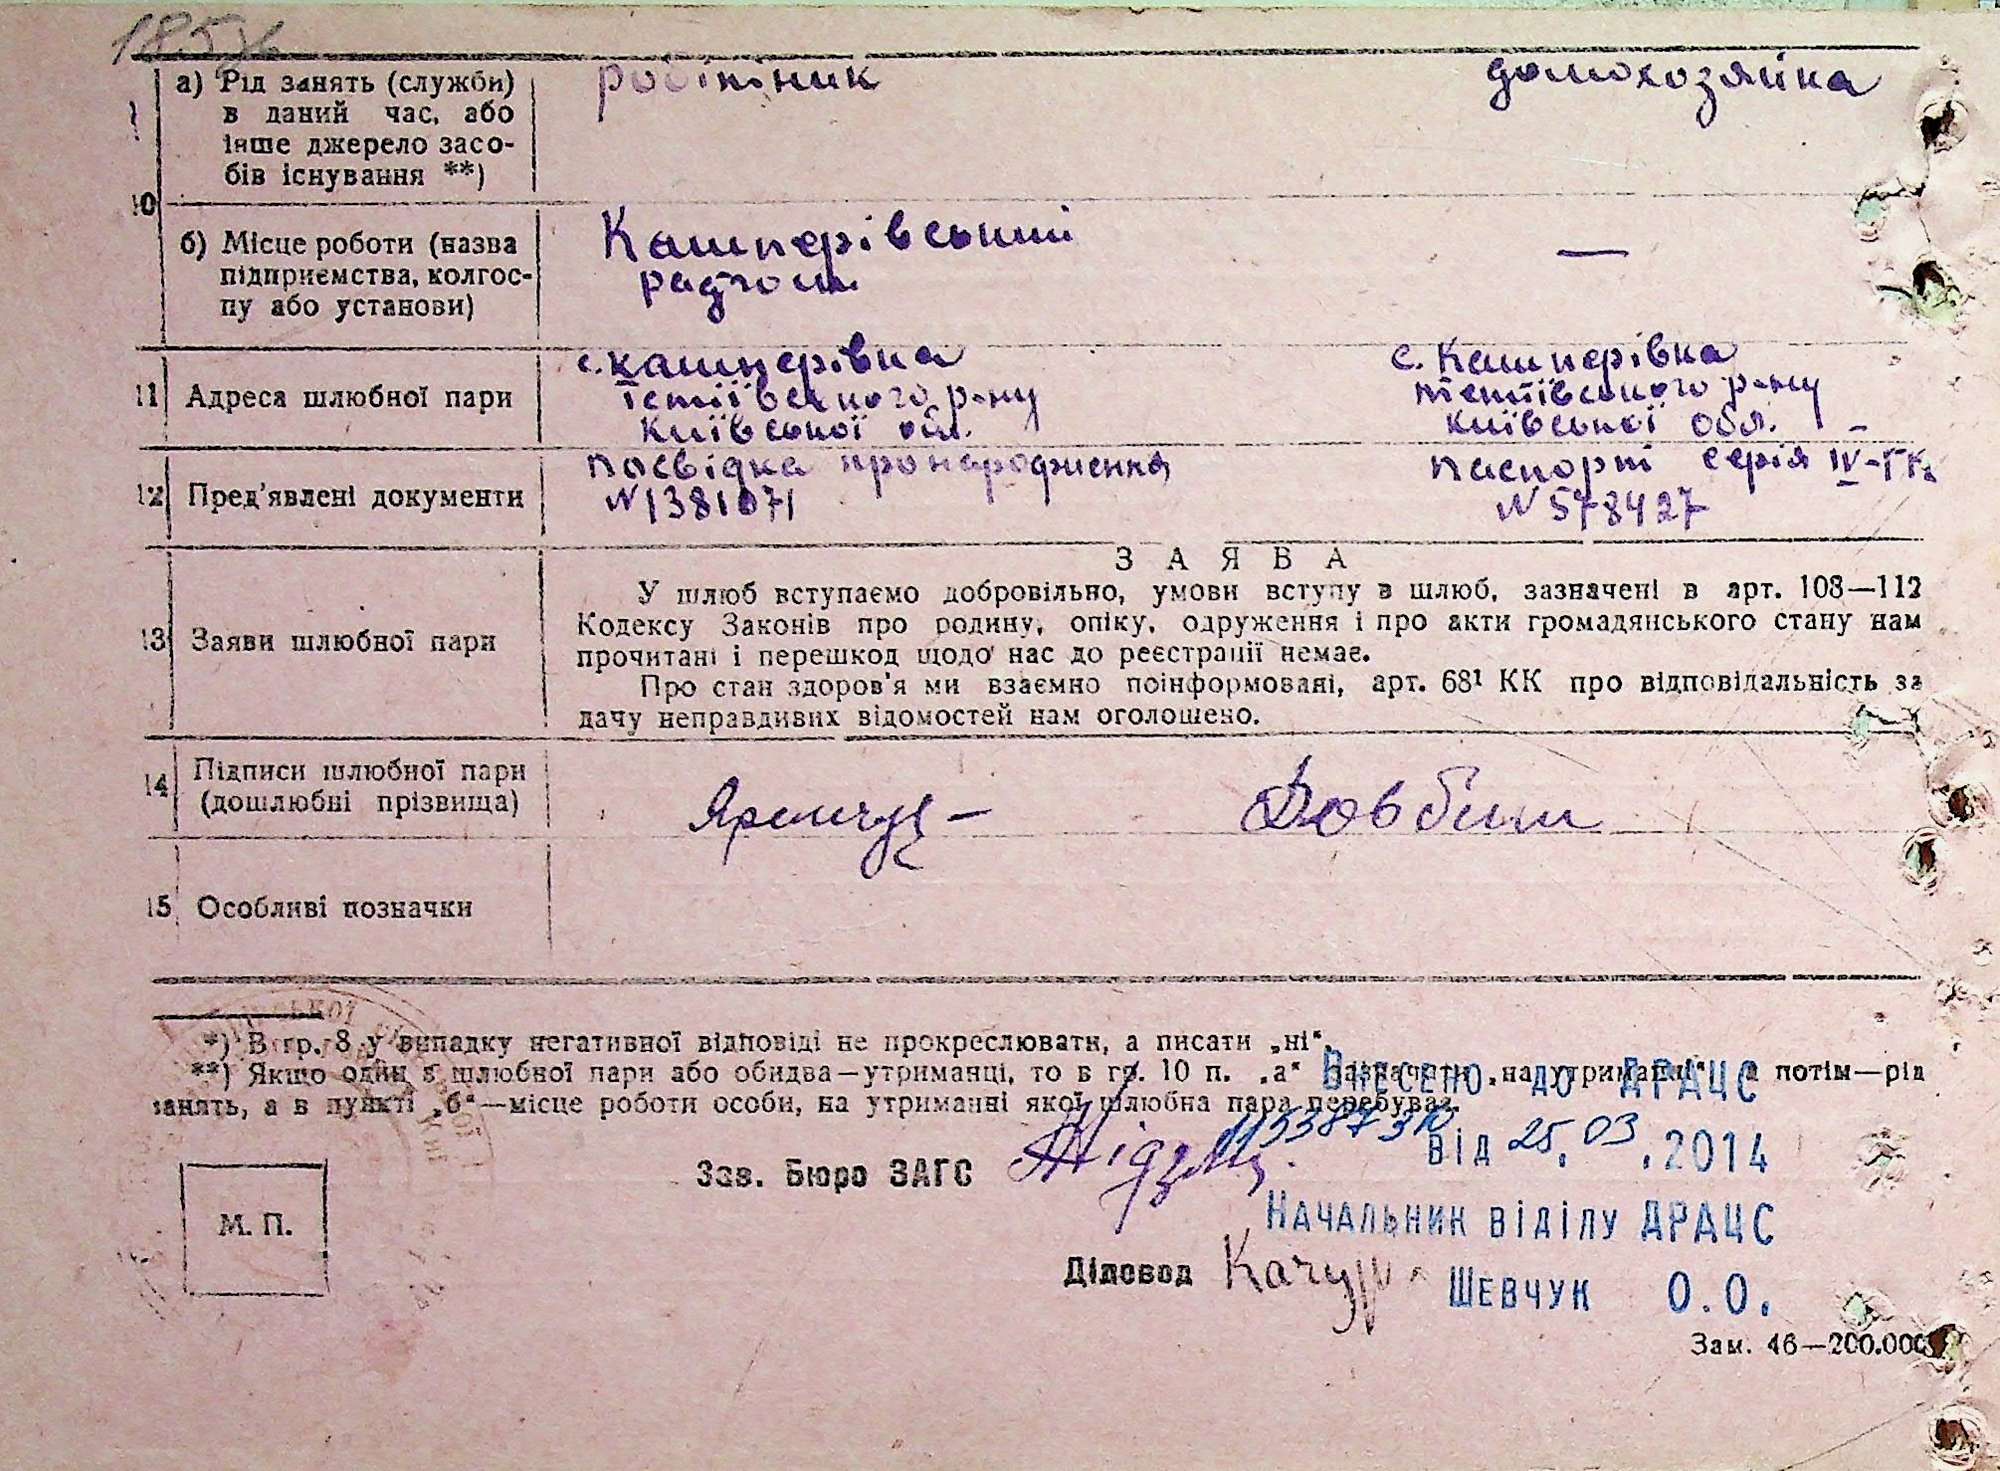 185
а) Рід занять (служби)
в даний час, або
інше джерело засо-
бів існування **)
робітник
домохозяйка
10
б) Місце роботи (назва
підприємства, колгос-
пу або установи)
Кашперівський
радгосп
—
11 Адреса шлюбної пари
с. Кашперівка
Тетіївського р-ну
Київської обл.
с. Кашперівка
Тетіївського р-ну
Київської обл.
12 Пред'явлені документи
посвідка про народження
N 1381071
паспорт серія IV-ГК
N 578427
13 Заяви шлюбної пари
ЗАЯВА
У шлюб вступаємо добровільно, умови вступу в шлюб, зазначені в арт. 108—112
Кодексу Законів про родину, опіку, одруження і про акти громадянського стану нам
прочитані і перешкод щодо нас до реєстрації немає.
Про стан здоров'я ми взаємно поінформовані, арт. 68¹ КК про відповідальність за
дачу неправдивих відомостей нам оголошено.
14 Підписи шлюбної пари
(дошлюбні прізвища)
Яремчук
Довбиш
15 Особливі позначки
*) В гр. 8 у випадку негативної відповіді не прокреслювати, а писати „ні“.
**) Якщо один з шлюбної пари або обидва—утриманці, то в гр. 10 п. „а“ зазначити „на утриманні“, а потім—рід
занять, а в пункті „б“—місце роботи особи, на утриманні якої шлюбна пара перебуває.
Внесено до ДРАЦС
від 25.03.2014
Начальник відділу ДРАЦС
Шевчук О.О.
Зав. Бюро ЗАГС
М. П.
Діловод Качур
Зам. 46—200.000